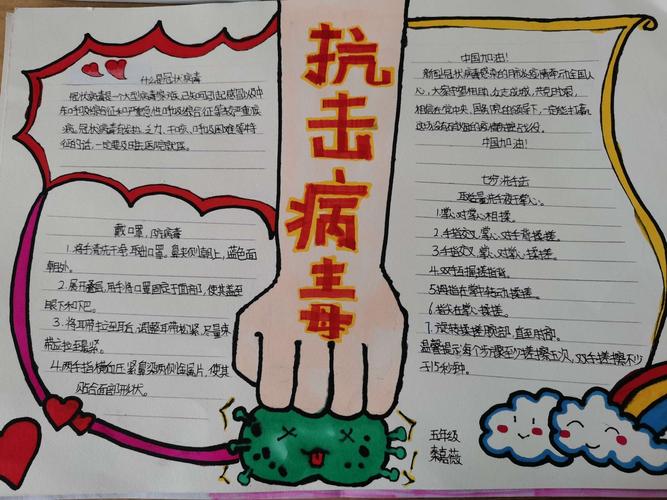 抗击病毒
什么是冠状病毒
冠状病毒是一个大型病毒家族,已知可引起感冒以及中
东呼吸综合征和严重急性呼吸综合征等较严重疾
病。冠状病毒有发热、乏力、干咳、呼吸困难等特
征的话,一定要及时去医院就医。
戴口罩,防病毒
1.将手清洗干牵取出口罩。鼻夹侧朝上,蓝色面
朝外。
2.展开叠层,用手将口罩固定于面部,使其盖至
眼下和下巴。
3.将耳带拉至耳后,调整耳带松紧,尽量保
带拉至最紧。
4.两手指横血压紧鼻梁两侧金属片,使其
贴合面部形状。
中国加油!
新型冠状病毒感染的肺炎疫情牵动全国人
心,大家守望相助,众志成城,共克时艰,
相信在党中央、国务院的领导下,一定能打赢
这场没有硝烟的疫情防控阻击战。
中国加油!
七步洗手法
取适量洗手液于掌心。
1.掌心对掌心相搓。
2.手指交叉,掌心对手背揉搓。
3.手指交叉,掌心对掌心揉搓。
4.双手互握揉搓指背。
5.拇指在掌中转动揉搓。
6.指尖在掌心揉搓。
7.旋转揉搓腕部,直至肘部。
温馨提示:每个步骤至少搓擦五次,双手搓擦不少
于15秒钟。
五年级